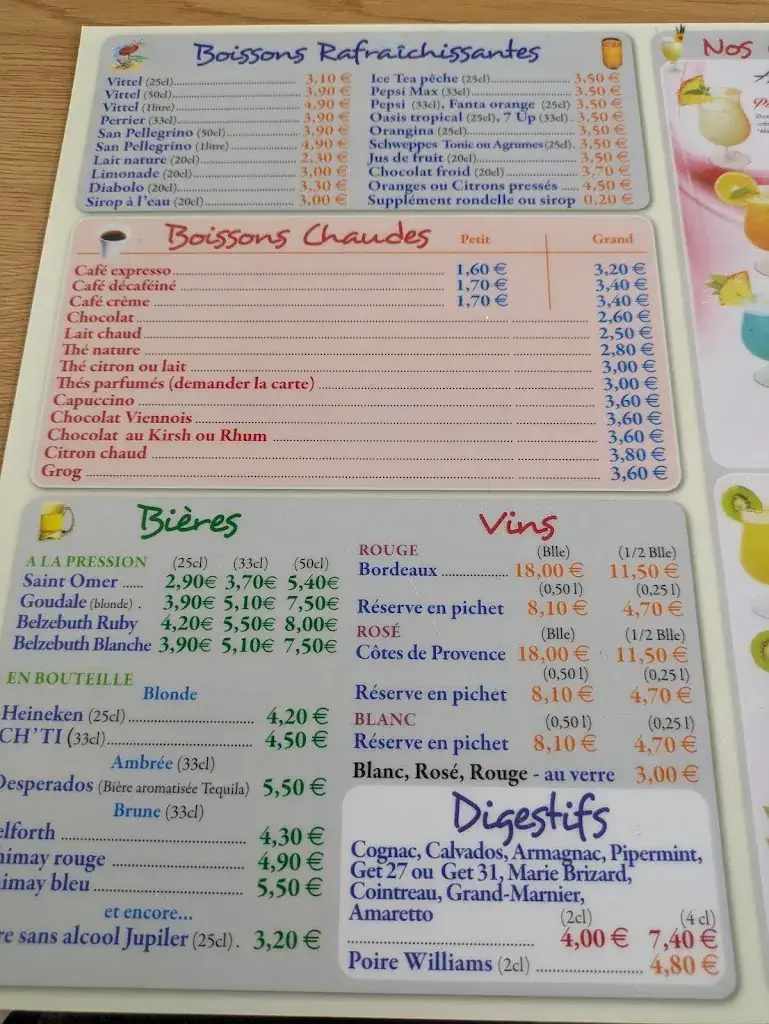 Boissons Rafraîchissantes
Vittel (25cl)..... 3,10 €
Vittel (50cl)..... 3,90 €
Vittel (1litre)..... 4,90 €
Perrier (33cl)..... 3,90 €
San Pellegrino (50cl)..... 3,90 €
San Pellegrino (1litre)..... 4,90 €
Lait nature (20cl)..... 2,30 €
Limonade (20cl)..... 3,00 €
Diabolo (20cl)..... 3,30 €
Sirop à l'eau (20cl)..... 3,00 €
Ice Tea pêche (25cl)..... 3,50 €
Pepsi Max (33cl)..... 3,50 €
Pepsi (33cl), Fanta orange (25cl) 3,50 €
Oasis tropical (25cl), 7 Up (33cl). 3,50 €
Orangina (25cl)..... 3,50 €
Schweppes Tonic ou Agrumes(25cl). 3,50 €
Jus de fruit (20cl)..... 3,50 €
Chocolat froid (20cl)..... 3,70 €
Oranges ou Citrons pressés ..... 4,50 €
Supplément rondelle ou sirop 0,20 €
Boissons Chaudes Petit Grand
Café expresso..... 1,60 € 3,20 €
Café décaféiné ..... 1,70 € 3,40 €
Café crème ..... 1,70 € 3,40 €
Chocolat..... 2,60 €
Lait chaud..... 2,50 €
Thé nature ..... 2,80 €
Thé citron ou lait ..... 3,00 €
Thés parfumés (demander la carte)..... 3,00 €
Capuccino ..... 3,60 €
Chocolat Viennois ..... 3,60 €
Chocolat au Kirsh ou Rhum ..... 3,60 €
Citron chaud ..... 3,80 €
Grog ..... 3,60 €
Bières
A LA PRESSION (25cl) (33cl) (50cl)
Saint Omer ...... 2,90€ 3,70€ 5,40€
Goudale (blonde) . 3,90€ 5,10€ 7,50€
Belzebuth Ruby 4,20€ 5,50€ 8,00€
Belzebuth Blanche 3,90€ 5,10€ 7,50€
EN BOUTEILLE
Blonde
Heineken (25cl)..... 4,20 €
CH'TI (33cl)..... 4,50 €
Ambrée (33cl)
Desperados (Bière aromatisée Tequila) 5,50 €
Brune (33cl)
elforth ..... 4,30 €
himay rouge ..... 4,90 €
imay bleu..... 5,50 €
et encore...
re sans alcool Jupiler (25cl). 3,20 €
Vins
ROUGE (Blle) (1/2 Blle)
Bordeaux ..... 18,00 € 11,50 €
(0,50 l) (0,25 l)
Réserve en pichet 8,10 € 4,70 €
ROSÉ (Blle) (1/2 Blle)
Côtes de Provence 18,00 € 11,50 €
(0,50 l) (0,25 l)
Réserve en pichet 8,10 € 4,70 €
BLANC (0,50 l) (0,25 l)
Réserve en pichet 8,10 € 4,70 €
Blanc, Rosé, Rouge - au verre 3,00 €
Digestifs
Cognac, Calvados, Armagnac, Pipermint,
Get 27 ou Get 31, Marie Brizard,
Cointreau, Grand-Marnier,
Amaretto (2cl) (4 cl)
..... 4,00 € 7,40 €
Poire Williams (2cl) ..... 4,80 €
Nos